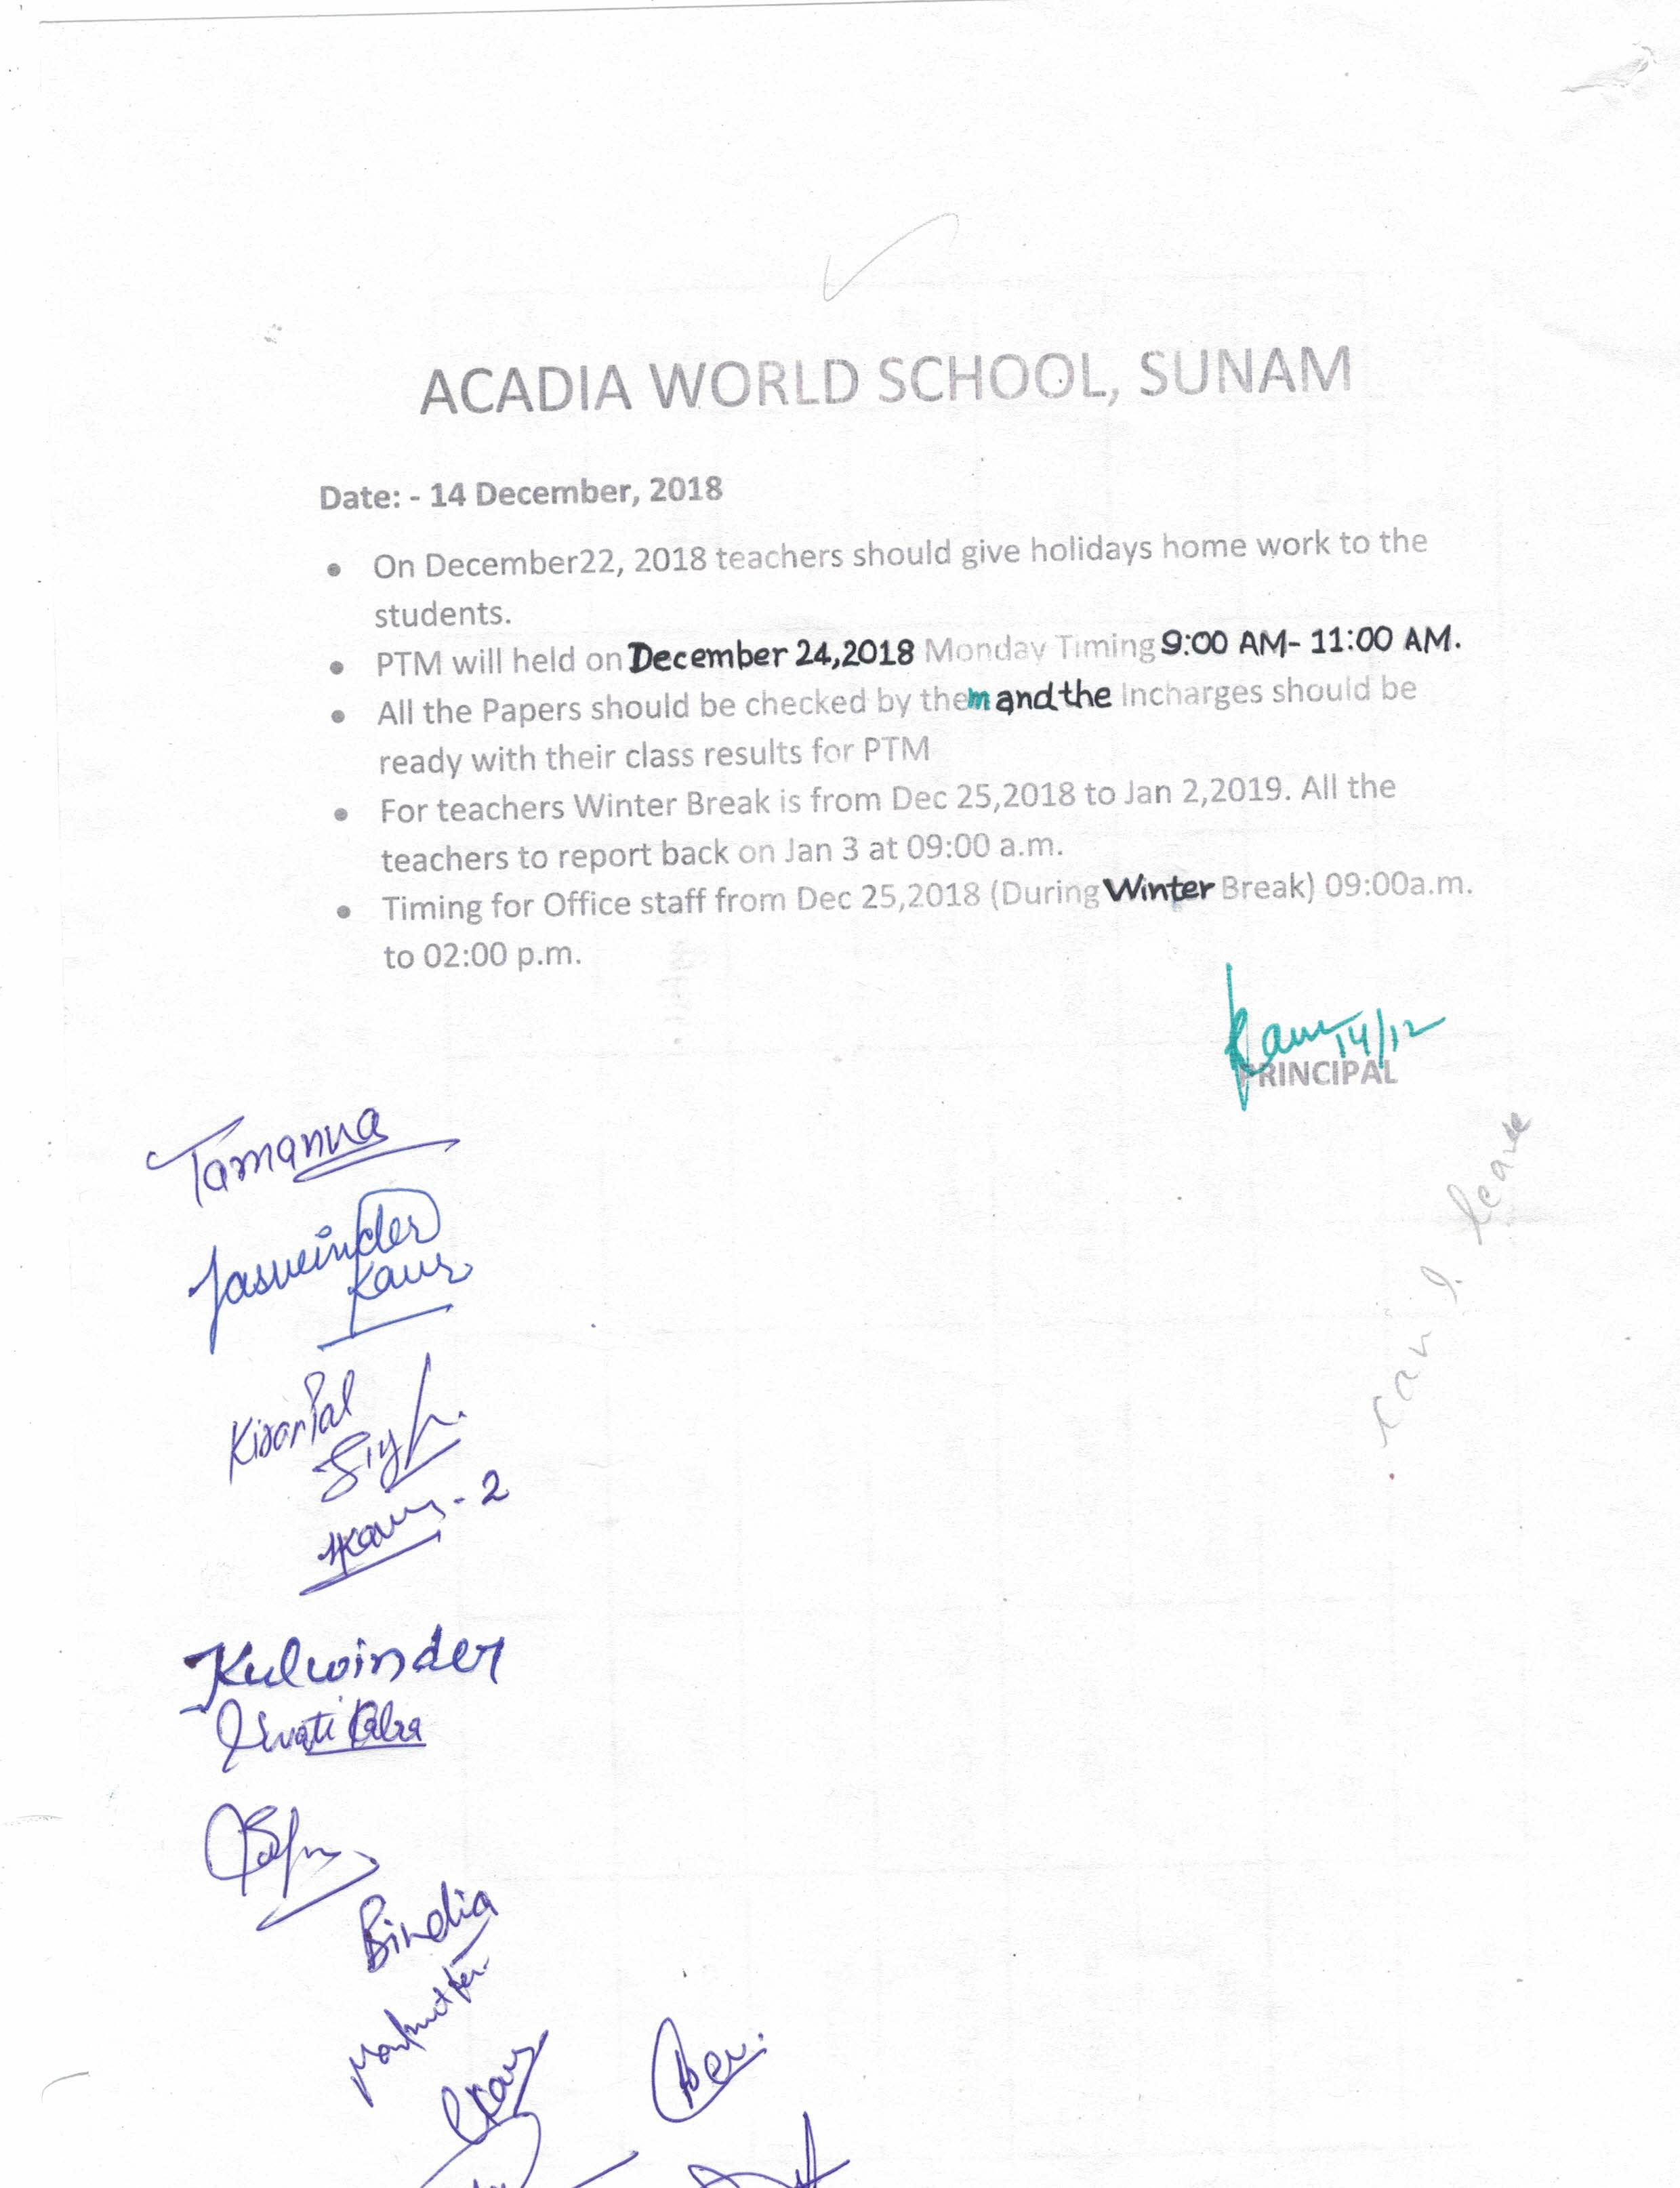 ACADIA WORLD SCHOOL, SUNAM
Date: - 14 December, 2018
• On December22, 2018 teachers should give holidays home work to the
students.
• PTM will held on December 24,2018 Monday Timing 9:00 AM- 11:00 AM.
• All the Papers should be checked by them and the Incharges should be
ready with their class results for PTM
• For teachers Winter Break is from Dec 25,2018 to Jan 2,2019. All the
teachers to report back on Jan 3 at 09:00 a.m.
• Timing for Office staff from Dec 25,2018 (During Winter Break) 09:00a.m.
to 02:00 p.m.
Kaur 14/12
PRINCIPAL
Tamanna
Jasveinder
Kaur
can I leave
Kulwinder
Swati Kalra
Bindia